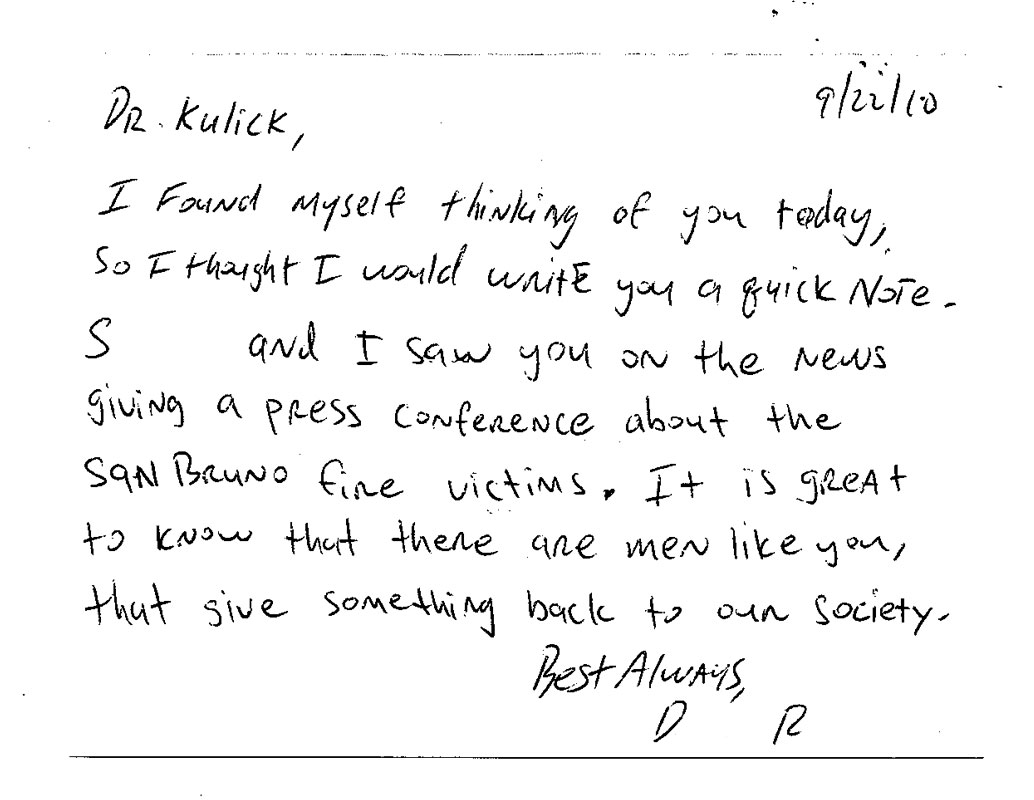 9/22/10
DR. Kulick,
I Found myself thinking of you today,
so I thought I would write you a quick Note.
S and I saw you on the news
giving a press conference about the
San Bruno fire victims. It is great
to know that there are men like you,
that give something back to our society.
Best Always,
D R